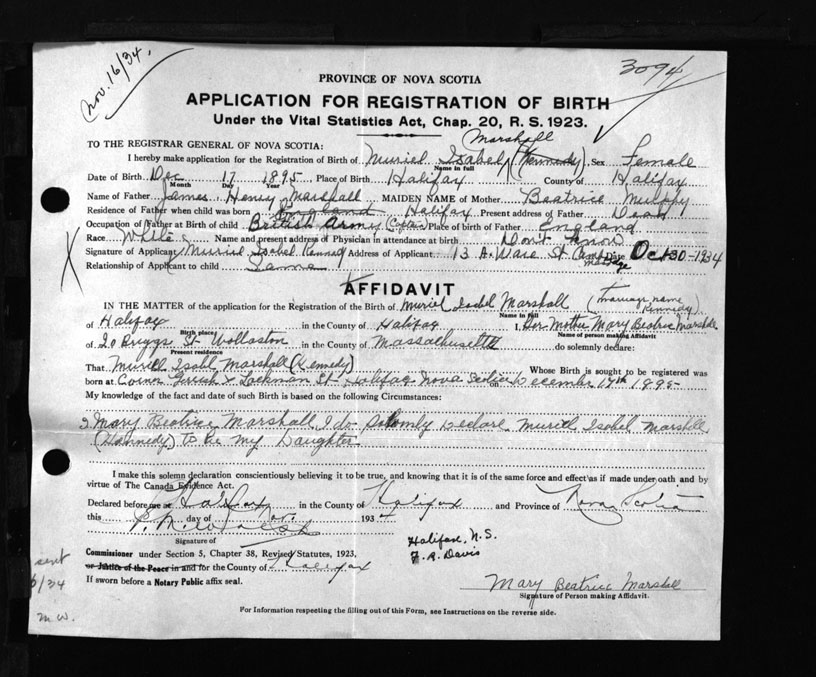 Nov. 16/34
3094
PROVINCE OF NOVA SCOTIA
APPLICATION FOR REGISTRATION OF BIRTH
Under the Vital Statistics Act, Chap. 20, R. S. 1923.
TO THE REGISTRAR GENERAL OF NOVA SCOTIA:
Marshall
I hereby make application for the Registration of Birth of Muriel Isabel (Kennedy), Sex Female
Name in full
Date of Birth Dec 17 1895 Place of Birth Halifax County of Halifax
Month Day Year
Name of Father James Henry Marshall MAIDEN NAME of Mother Beatrice Mulphy
Residence of Father when child was born England Halifax Present address of Father Dead
Occupation of Father at Birth of child British Army Place of birth of Father England
Race White Name and present address of Physician in attendance at birth Dont Know
Signature of Applicant Muriel Isabel Kennedy Address of Applicant 13 A. Ware St Camb Mass Date Oct 30-1934
Relationship of Applicant to child Same
AFFIDAVIT
IN THE MATTER of the application for the Registration of the Birth of Muriel Isabel Marshall (Marriage name Kennedy)
Name in full
of Halifax in the County of Halifax I, Her Mother Mary Beatrice Marshall
Birth place Name of person making Affidavit
of 20 Briggs St Wollaston in the County of Massachusetts do solemnly declare:
Present residence
That Muriel Isabl Marshall (Kennedy) Whose Birth is sought to be registered was
born at Corner Gerrish & Lockman St, Halifax Nova Scotia on December 17th 1895-
My knowledge of the fact and date of such Birth is based on the following Circumstances:
I Mary Beatrice Marshall I do Solomly Declare Muriel Isabel Marshall
(Kennedy) to be my Daughter
I make this solemn declaration conscientiously believing it to be true, and knowing that it is of the same force and effect as if made under oath and by
virtue of The Canada Evidence Act.
Declared before me at Halifax in the County of Halifax and Province of Nova Scotia
this day of 193
Signature of
Halifax, N.S.
F. R. Davis
Commissioner under Section 5, Chapter 38, Revised Statutes, 1923,
or Justice of the Peace in and for the County of Halifax
If sworn before a Notary Public affix seal.
Mary Beatrice Marshall
Signature of Person making Affidavit.
sent
6/34
M.W.
For Information respecting the filling out of this Form, see Instructions on the reverse side.